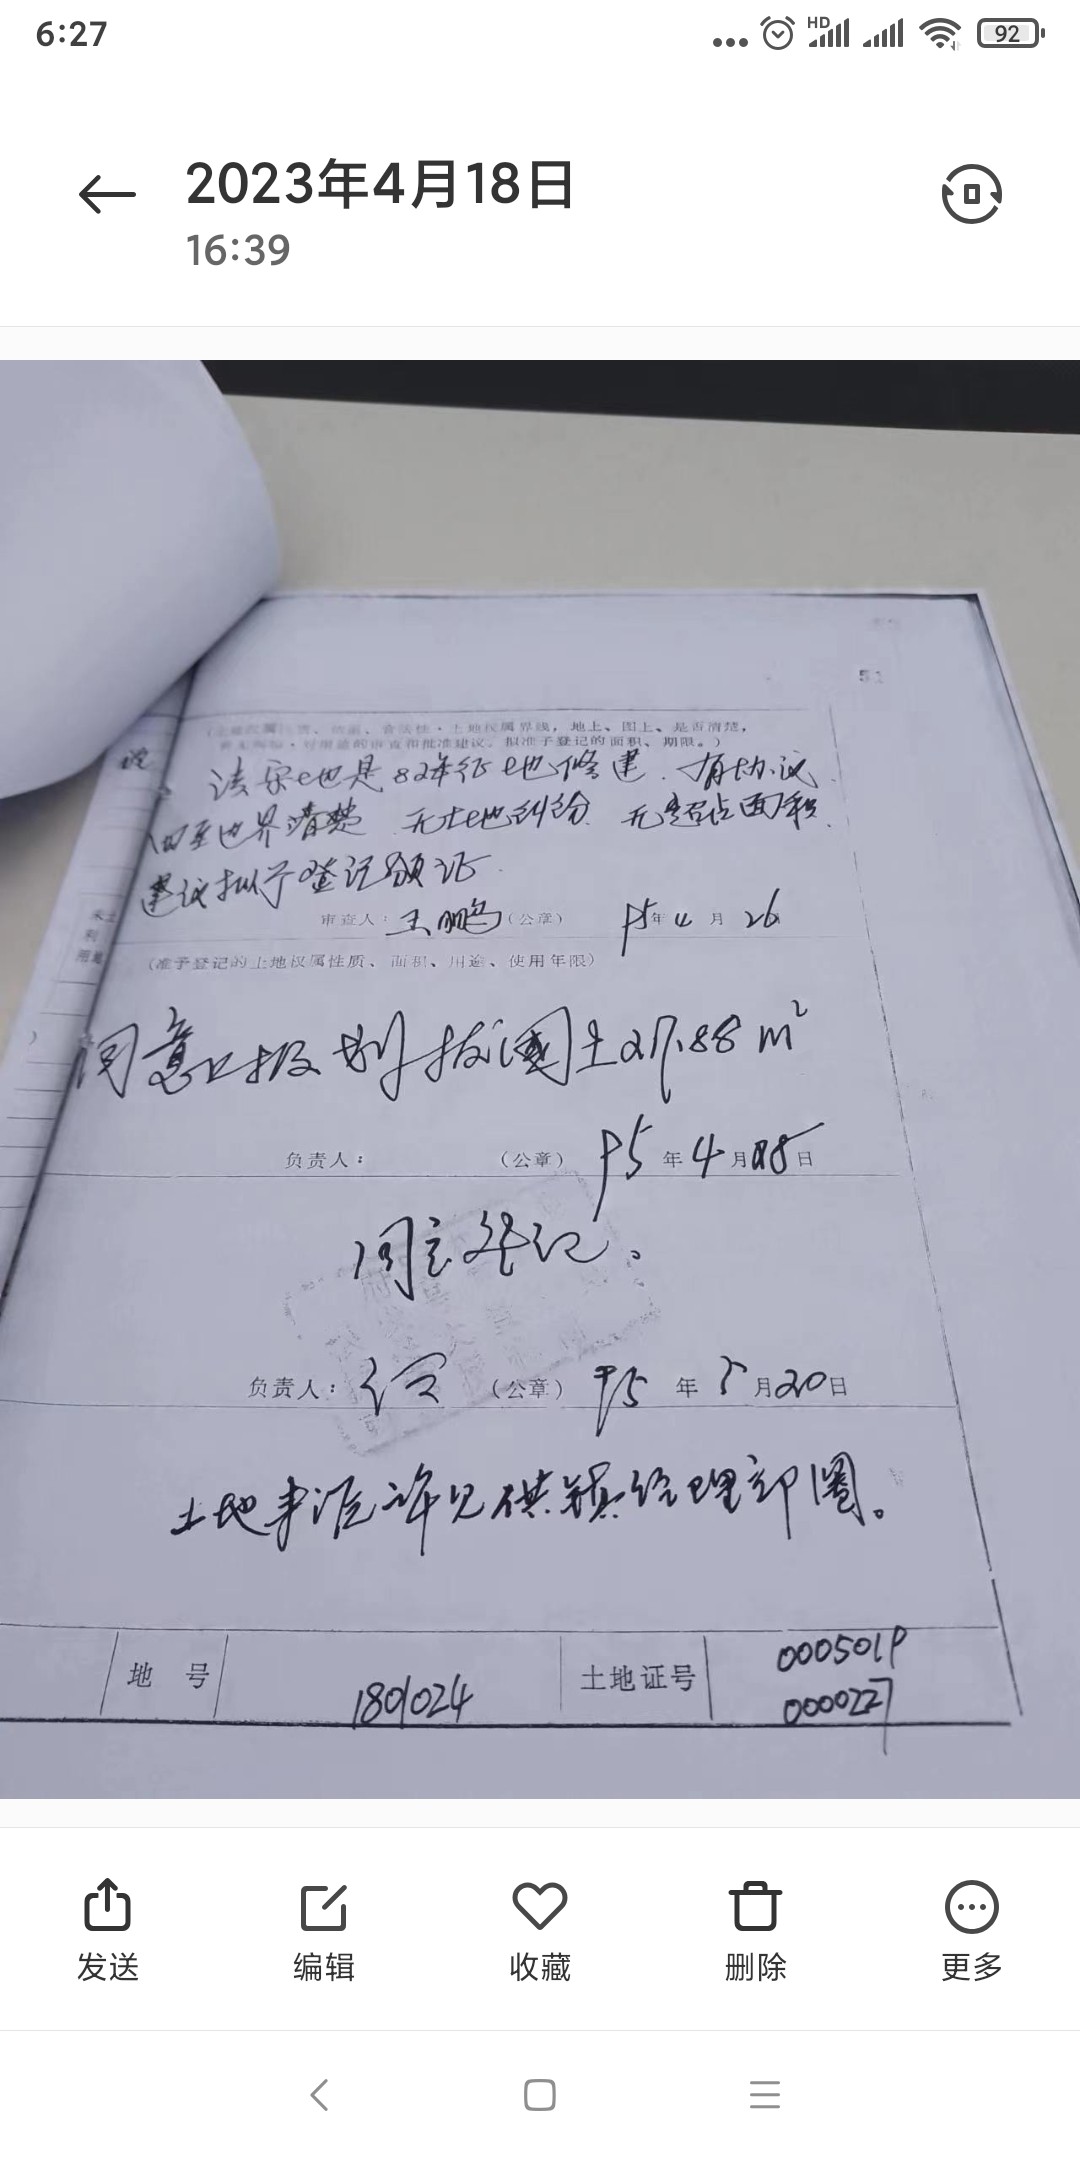 6:27
HD
92
2023年4月18日
16:39
51
地权属界线，地上、图上、是否清楚，
审查和批准建议。拟准予登记的面积、期限。）
该宗地是82年征地修建.有协议
四至边界清楚 无土地纠纷 无超占面积.
建议拟予登记颁证.
审查人：王鹏（公章） 95年4月26
（准予登记的土地权属性质、面积、用途、使用年限）
同意上报划拔国土 m²
负责人： （公章） 95年4月 日
同意登记。
负责人： （公章） 95年5月20日
土地 详见供 经理部图。
地 号
1801024
土地证号
0005019
0000227
发送
编辑
收藏
删除
更多